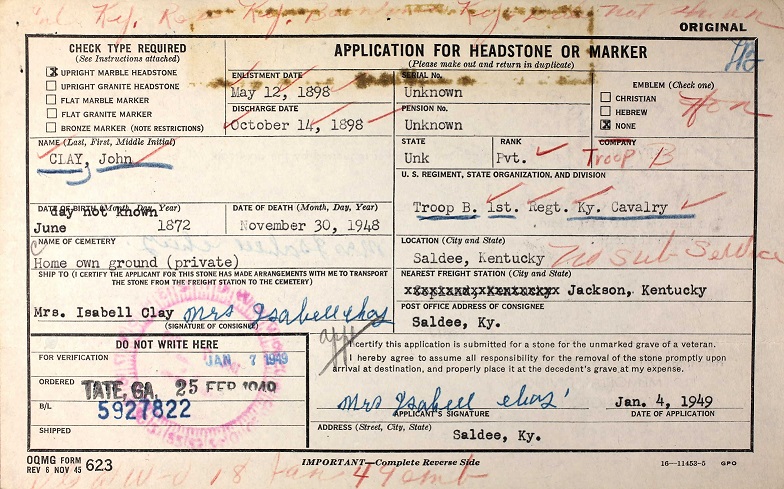 Ky. Ky. not shown
ORIGINAL
CHECK TYPE REQUIRED
(See Instructions attached)
X UPRIGHT MARBLE HEADSTONE
UPRIGHT GRANITE HEADSTONE
FLAT MARBLE MARKER
FLAT GRANITE MARKER
BRONZE MARKER (NOTE RESTRICTIONS)
APPLICATION FOR HEADSTONE OR MARKER
(Please make out and return in duplicate)
ENLISTMENT DATE
May 12, 1898
DISCHARGE DATE
October 14, 1898
SERIAL No.
Unknown
PENSION No.
Unknown
EMBLEM (Check one)
CHRISTIAN
HEBREW
X NONE
Hon
NAME (Last, First, Middle Initial)
CLAY, John
STATE
Unk
RANK
Pvt.
COMPANY
Troop B
U. S. REGIMENT, STATE ORGANIZATION, AND DIVISION
Troop B. 1st. Regt. Ky. Cavalry
DATE OF BIRTH (Month, Day, Year)
day not known
June 1872
DATE OF DEATH (Month, Day, Year)
November 30, 1948
NAME OF CEMETERY
Home own ground (private)
LOCATION (City and State)
Saldee, Kentucky
No sub Service
SHIP TO (I CERTIFY THE APPLICANT FOR THIS STONE HAS MADE ARRANGEMENTS WITH ME TO TRANSPORT
THE STONE FROM THE FREIGHT STATION TO THE CEMETERY)
Mrs. Isabell Clay Mrs Isabell Clay
(SIGNATURE OF CONSIGNEE)
NEAREST FREIGHT STATION (City and State)
Jackson, Kentucky
POST OFFICE ADDRESS OF CONSIGNEE
Saldee, Ky.
DO NOT WRITE HERE
FOR VERIFICATION
JAN 7 1949
ORDERED
TATE, GA. 25 FEB 1949
B/L
5927822
SHIPPED
app
I certify this application is submitted for a stone for the unmarked grave of a veteran.
I hereby agree to assume all responsibility for the removal of the stone promptly upon
arrival at destination, and properly place it at the decedent's grave at my expense.
Mrs Isabell Clay
APPLICANT'S SIGNATURE
Jan. 4, 1949
DATE OF APPLICATION
ADDRESS (Street, City, State)
Saldee, Ky.
OQMG FORM
REV 6 NOV 45 623
IMPORTANT—Complete Reverse Side
16—11453-5 GPO
18 Jan 49